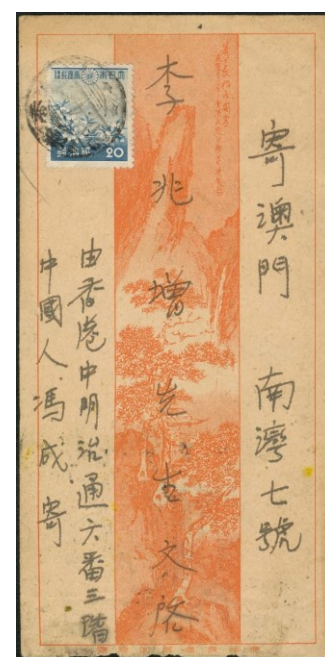 寄澳門 南灣七號
李兆增先生文啓
由香港中明治通六番三階
中國人馮成寄
20